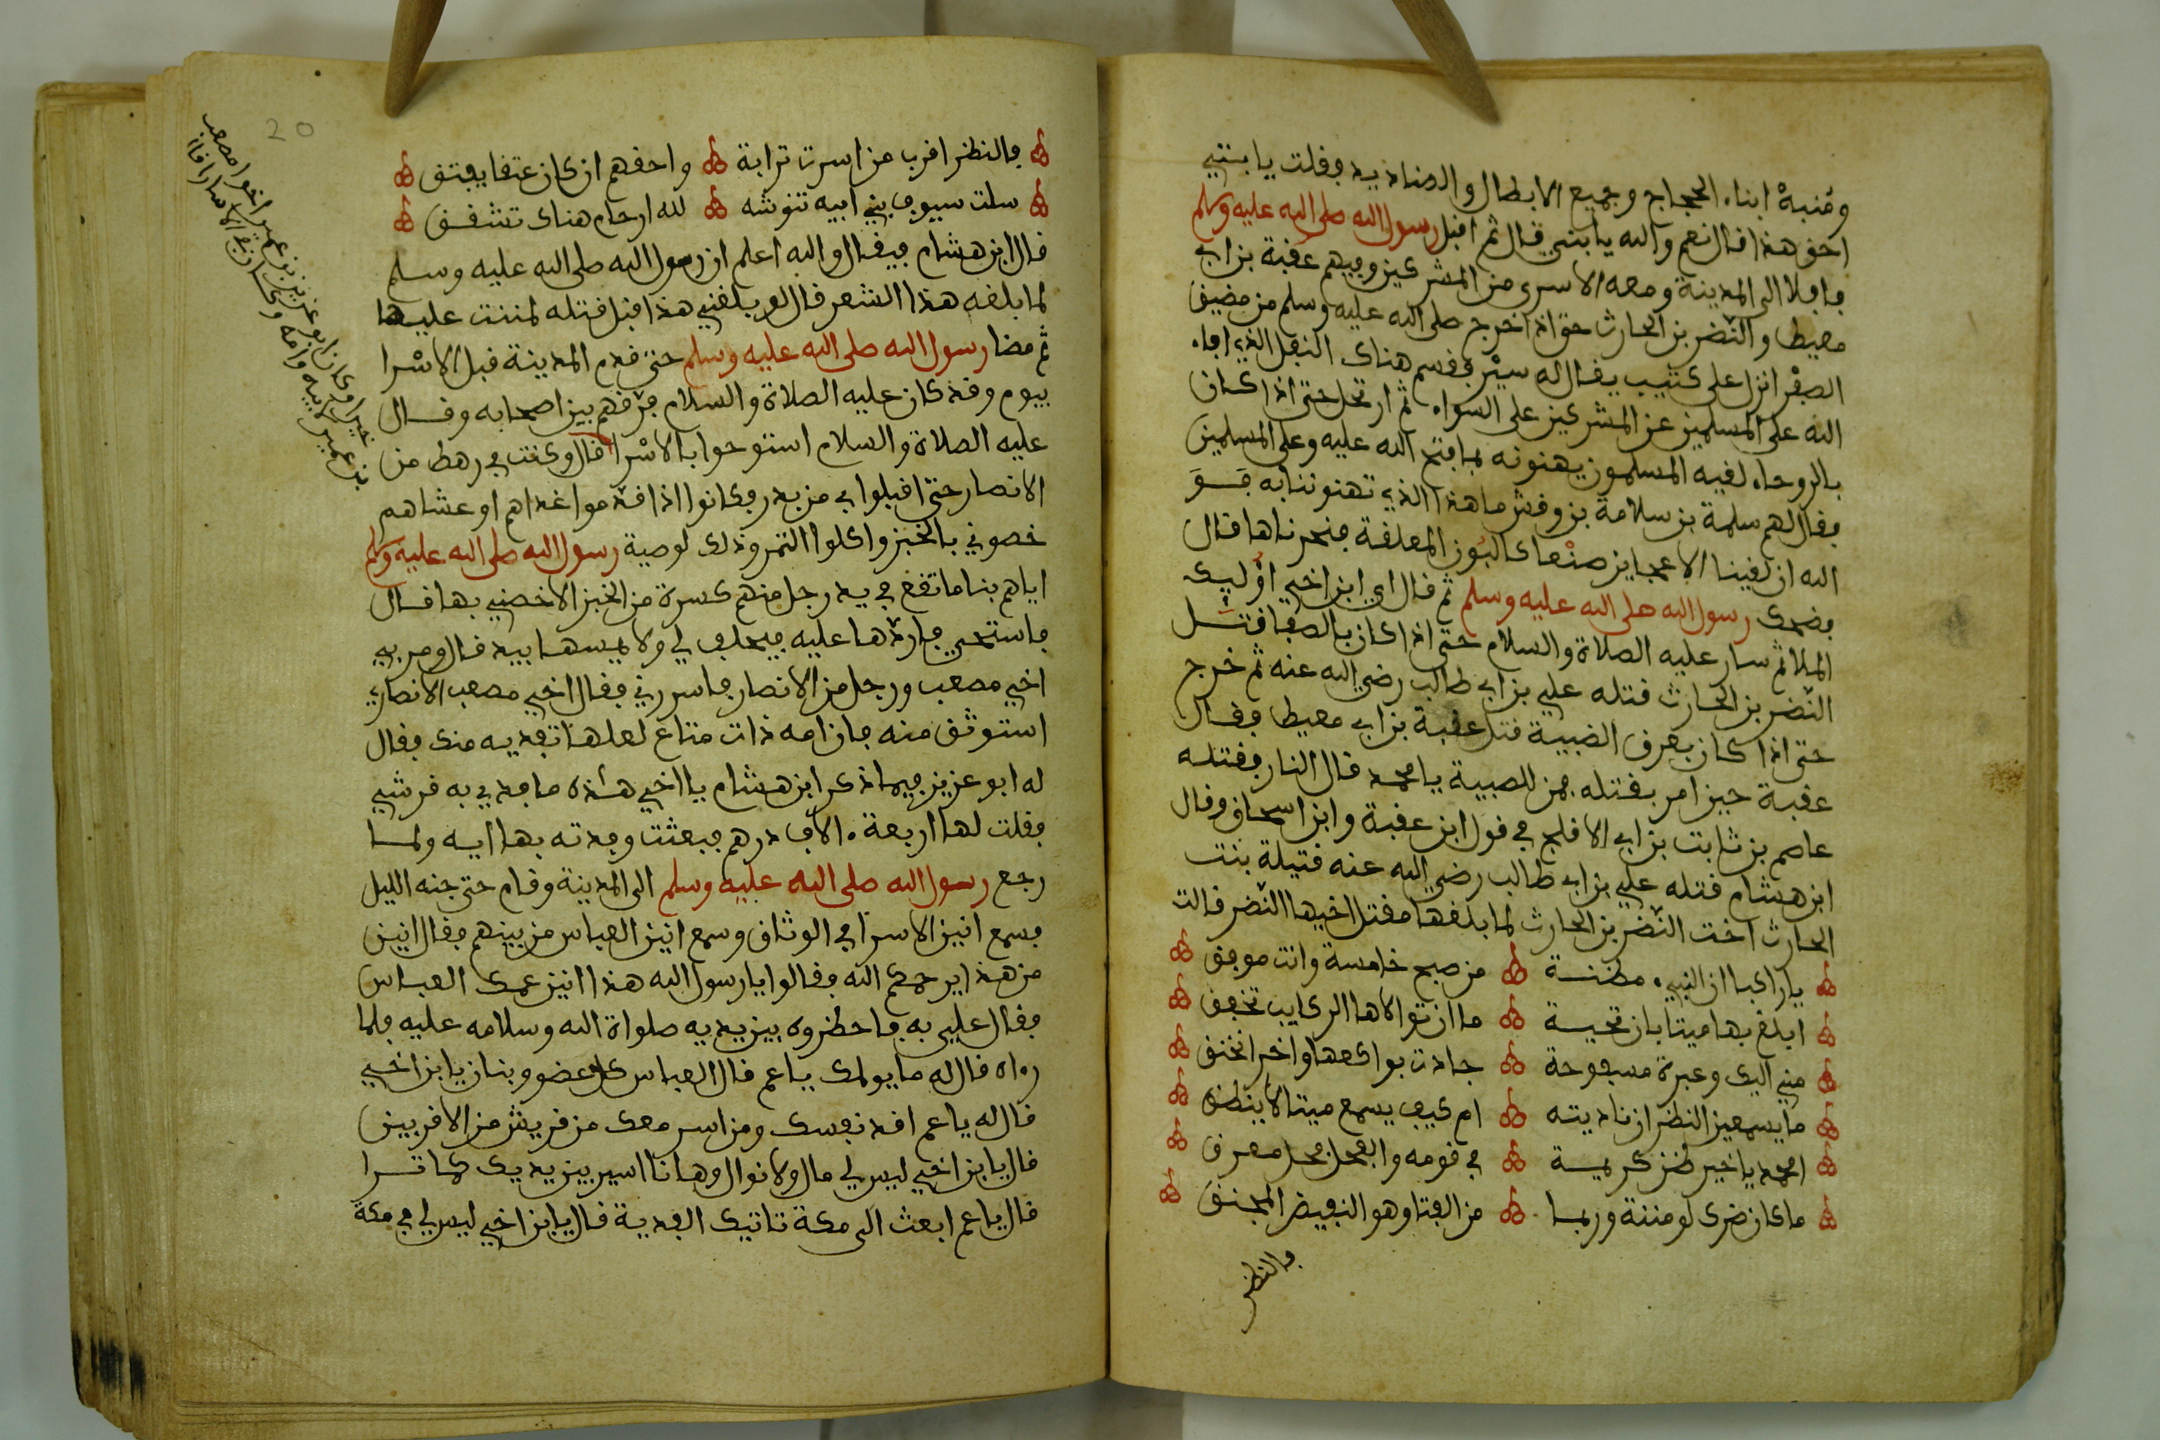 ومنبه ابناء الحجاج وجميع الابطال والصناديد فقلت يا ابتي
احق هذا قال نعم والله يا بني قال ثم اقبل رسول الله صلى الله عليه وسلم
قافلا الى المدينة ومعه الاسرى من المشركين وفيهم عقبة بن ابي
معيط والنضر بن الحارث حتى اذا خرج صلى الله عليه وسلم من مضيق
الصفراء نزل على كثيب يقال له سير فقسم هناك النفل الذي افاء
الله على المسلمين من المشركين على السواء ثم ارتحل حتى اذا كان
بالروحاء لقيه المسلمون يهنونه بما فتح الله عليه وعلى المسلمين
فقال لهم سلمة بن سلامة بن وقش ما هذا الذي تهنوننا به فو
الله ان لقينا الا عجايز صنعا كالبدن المعلقة فنحرناها قال
فضحك رسول الله صلى الله عليه وسلم ثم قال اي ابن اخي اوليك
الملا ثم سار عليه الصلاة والسلام حتى اذا كان بالصفرا قتل
النضر بن الحارث قتله علي بن ابي طالب رضي الله عنه ثم خرج
حتى اذا كان بعرق الضبية قتل عقبة بن ابي معيط فقال
عقبة حين امر بقتله فمن للصبية يا محمد قال النار فقتله
عاصم بن ثابت بن ابي الافلح في قول ابن عقبة وابن اسحاق وقال
ابن هشام قتله علي بن ابي طالب رضي الله عنه قتيلة بنت
الحارث اخت النضر بن الحارث لما بلغها مقتل اخيها النضر قالت
يا راكبا ان النبيء مظنة من صبح خامسة وانت موفق
ابلغ بها ميتا بان تحية ما ان تزال لاها الركايب تخفق
مني اليك وعبرة مسفوحة جادت بواكفها واخرا تخنق
ما يسمعن النظر ان ناديته ام كيف يسمع ميتا لا ينطق
امحمد يا خير ظنء كريمة في قومه والفحل فحل معرق
ما كان ضرك لو مننة وربما من الفتا وهو النغيض المحنق
فالنظر
20
فالنظر اقرب من اسرت ترابة واحقهم ان كان عتقا يعتق
سلت سيوف بني ابيه تنوشه لله ارحام هناك تشقق
قال ابن هشام فيقال والله اعلم ان رسول الله صلى الله عليه وسلم
لما بلغه هذا الشعر قال لو بلغني هذا قبل قتله لمننت عليها
ثم مضا رسول الله صلى الله عليه وسلم حتى قدم المدينة قبل الاسرا
بيوم وقد كان عليه الصلاة والسلام فرقهم بين اصحابه وقال
عليه الصلاة والسلام استوحوا بالاسرا قال وكنت في رهط من
الانصار حتى اقبلوا بي من بدر وكانوا اذا قدموا غداهم او عشاهم
خصوني بالخبز واكلوا التمر وذلك لوصية رسول الله صلى الله عليه وسلم
اياهم بنا ما تقع في يد رجل منهم كسرة من الخبز الا خصني بها قال
فاستحي فاردها عليه فيحلف لي ولا يمسها بيد قال ومر بي
اخي مصعب ورجل من الانصار ماسرني فقال اخي مصعب الانصاري
استوثق منه فان امه ذات متاع لعلها تفديه منك فقال
له ابو عزيز فيما ذكر ابن هشام يا اخي هذه ما فدي به قرشي
فقلت لها اربعة ءالاف درهم فبعثت وفدته بها ايه ولما
رجع رسول الله صلى الله عليه وسلم الى المدينة وقام حتى جنه الليل
فسمع انين الاسرا في الوثاق وسمع انين العباس من بينهم فقال انين
من هذا يرحمكم الله فقالوا يا رسول الله هذا انين عمك العباس
فقال علي به فاحظروه بين يديه صلواة الله وسلامه عليه فلما
رءاه قال له ما يولمك يا عم قال العباس كل عضو وبنان يا ابن اخي
قال له يا عم افد نفسك ومن اسر معك من قريش من الاقربين
قال يا بن اخي ليس لي مال ولا نوال وها نا اسير بين يديك كما ترا
قال يا عم ابعث الى مكة تاتيك الفدية قال يا بن اخي ليس لي في مكة
وكان ابو عزيز بن عمير اخو مصعب
بن عمير لابيه وامه وكان في الاسارا